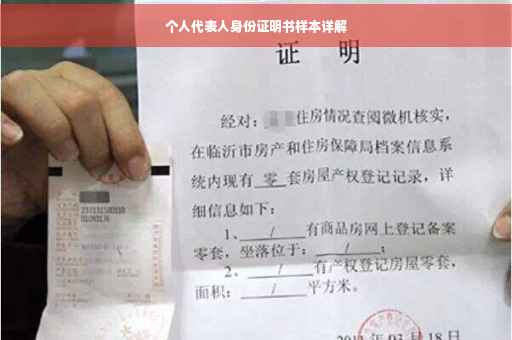 个人代表人身份证明书样本详解
证 明
经对：住房情况查阅微机核实，
在临沂市房产和住房保障局档案信息系
统内现有 零 套房屋产权登记记录，详
细信息如下：
1、 / 有商品房网上登记备案
零套，坐落位于： / ；
2、 / 有产权登记房屋零套，
面积： / 平方米。
03月18日